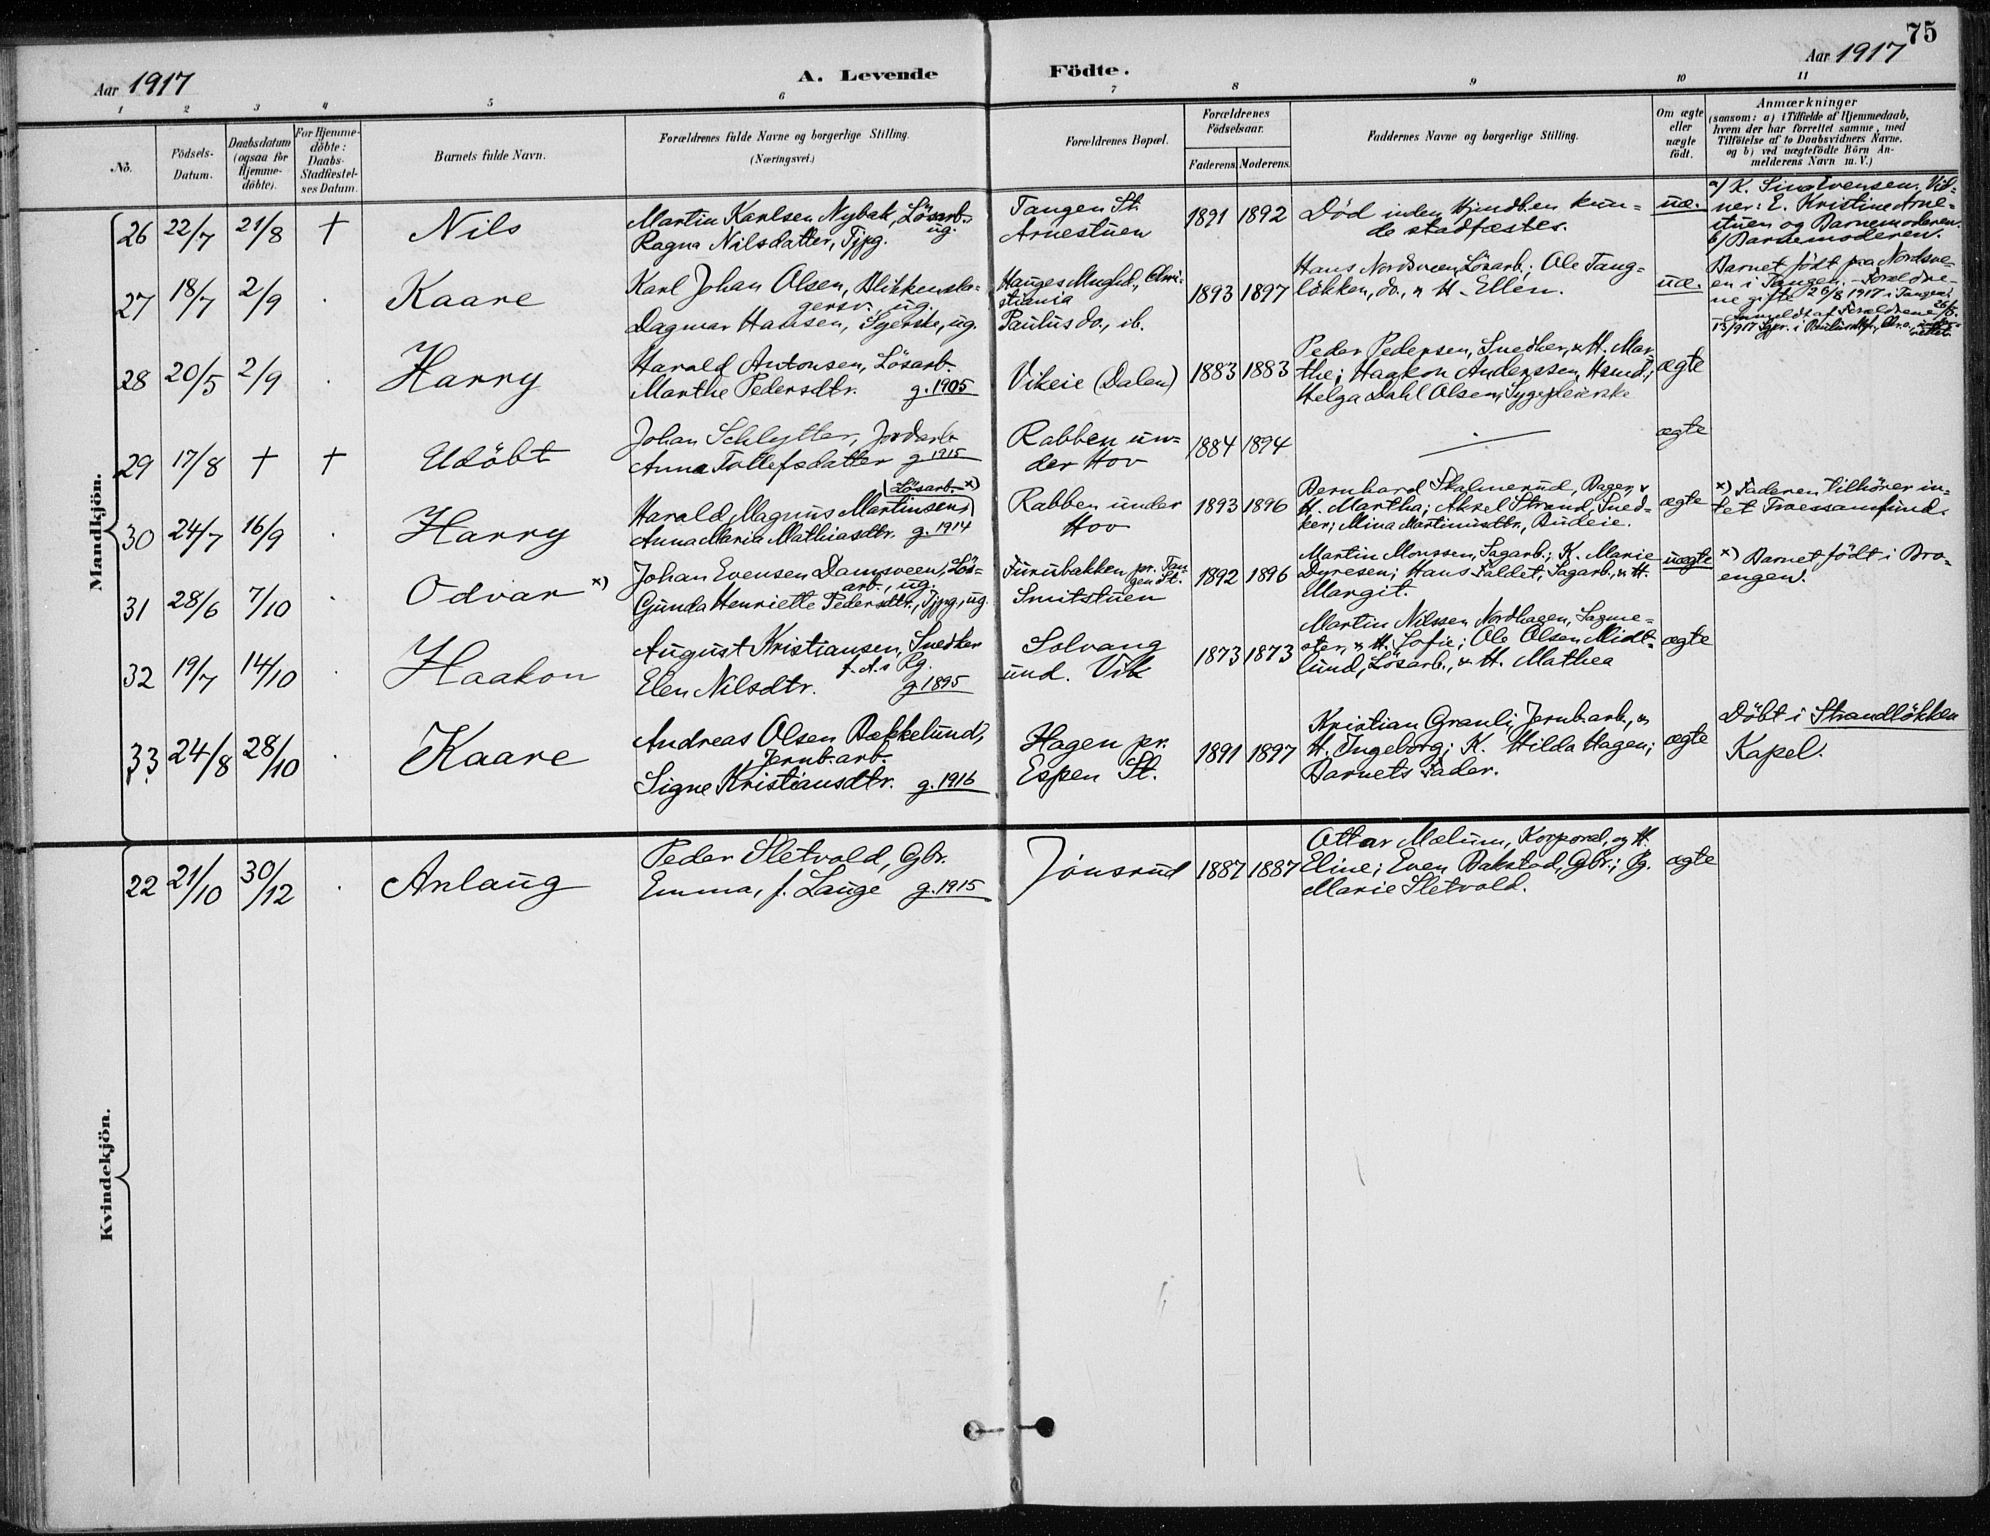 75
Aar 1917
A. Levende Födte.
Aar 1917
1 2 3 4 5 6 7 8 9 10 11
No.
Födsels-Datum.
Daabsdatum (ogsaa for Hjemme-döbte).
For Hjemme-döbte: Daabs-Stadfæstel-ses Datum.
Barnets fulde Navn.
Forældrenes fulde Navne og borgerlige Stilling.
(Næringsvei.)
Forældrenes Bopæl.
Forældrenes Födselsaar.
Faderens. Moderens.
Faddernes Navne og borgerlige Stilling.
Om ægte eller uægte födt.
Anmærkninger
(saasom: a) i Tilfælde af Hjemmedaab, hvem der har forrettet samme, med Tilföielse af to Daabsvidners Navne, og b) ved uægtefödte Börn An-melderens Navn m. V.)
Mandkjön.
26 22/7 21/8 † Nils
Martin Karlsen Nybak, Lösarb., ug.
Ragna Nilsdatter, Tjpg.
Tangen St.
Arnestuen
1891 1892
Död inden Hjmdb.en kun-
de stadfæstes.
uæ.
a) K. Sina Evensen. Vid-
ner: E. Kristine Arne-
stuen og Barnemoderen.
b) Barnemoderen.
27 18/7 2/9 . Kaare
Karl Johan Olsen, Blikkensla-
gersv., ug.
Dagmar Hansen, Syerske, ug.
Hauges Mughd., Chri-
stiania
Paulus do., ib.
1893 1897
Hans Nordsveen, Lösarb.; Ole Tang-
lökken, do., & H. Ellen.
uæ.
Barnet födt paa Nordsve-
en i Tangen. – Forældre-
ne gifte 26/8 1917 i Tangen.
Anmeldt af Forældrene 26/8.
28 20/5 2/9 . Harry
Harald Antonsen, Lösarb.
Marthe Pedersdtr. g. 1905
Vikeie (Dalen)
1883 1883
Peder Pedersen, Snedker, & H. Mar-
the; Haakon Anderssen, Hsmd.;
Helga Dahl Olsen, Sygepleierske
ægte
29 17/8 † † Udöbt
Johan Schlytter, Jordarb.
Anna Tollefsdatter g. 1915
Rabben un-
der Hov
1884 1894
—
ægte
30 24/7 16/9 Harry
(Lösarb. x)
Harald Magnus Martinsen,
Anna Maria Mathiasdtr. g. 1914
Rabben under
Hov
1893 1896
Bernhard Skalmerud, Bager, &
H. Martha; Aksel Strand, Sned-
ker; Mina Martinusdtr., Budeie.
ægte
x) Faderen tilhörer in-
tet Troessamfund.
31 28/6 7/10 . Odvar x)
Johan Evensen Damsveen, Lös-
arb., ug.
Gunda Henriette Pedersdtr., Tjpg., ug.
Furubakken pr. Tan-
gen St.
Smitstuen
1892 1896
Martin Monssen, Sagarb.; K. Marie
Dyresen; Hans Faldet, Sagarb., & H.
Margit.
uægte
x) Barnet födt i Bro-
engen.
32 19/7 14/10 . Haakon
August Kristiansen, Snedker
Elen Nilsdtr. g. 1895
Solvang
und. Vik
1873 1873
Martin Nilssen Nordhagen, Sagme-
ster, & H. Sofie; Ole Olsen Midt-
lund, Lösarb., & H. Mathea
ægte
33 24/8 28/10 . Kaare
Andreas Olsen Bækkelund,
Jernb.arb.
Signe Kristiansdtr. g. 1916
Hagen pr.
Espen St.
1891 1897
Kristian Granli, Jernb.arb., &
H. Ingeborg; K. Hilda Hagen;
Barnets Fader.
ægte
Döbt i Strandlökken
Kapel.
Kvindekjön.
22 21/10 30/12 . Anlaug
Peder Sletvold, Gbr.
Emma, f. Lauge g. 1915
Jönsrud
1887 1887
Ottar Mælum, Korporal, og H.
Eline; Even Bakstad, Gbr.; Pg.
Marie Sletvold.
ægte